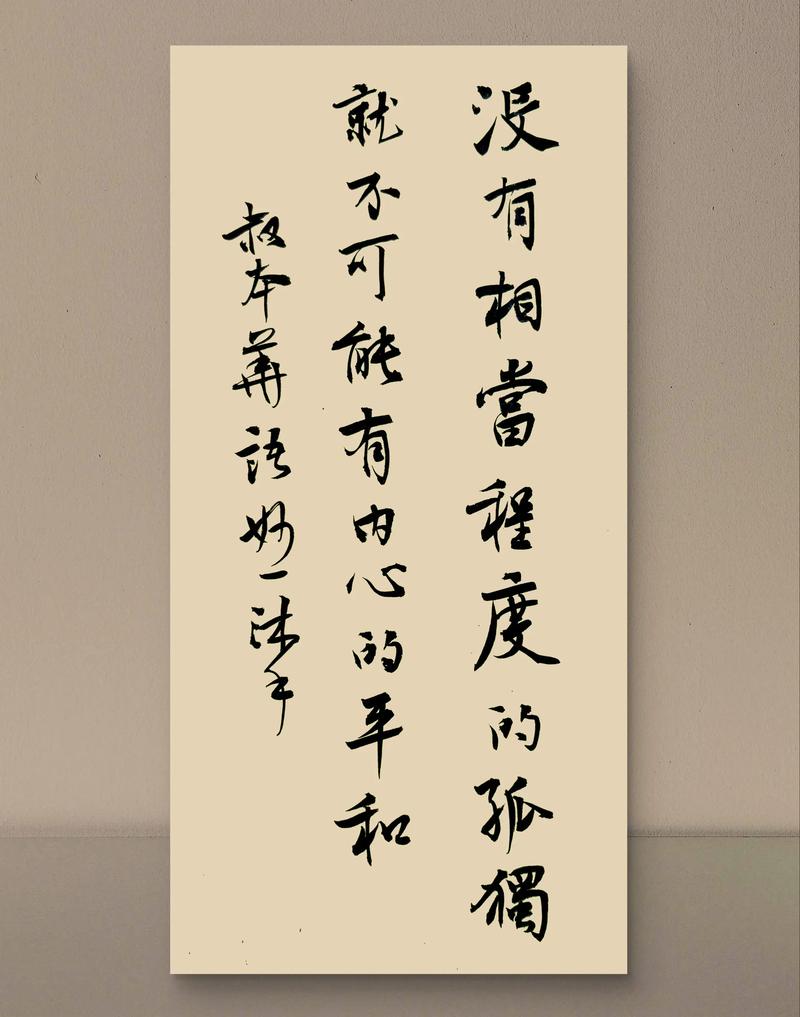 没有相當程度的孤獨
就不可能有内心的平和
叔本華語妙一沐手